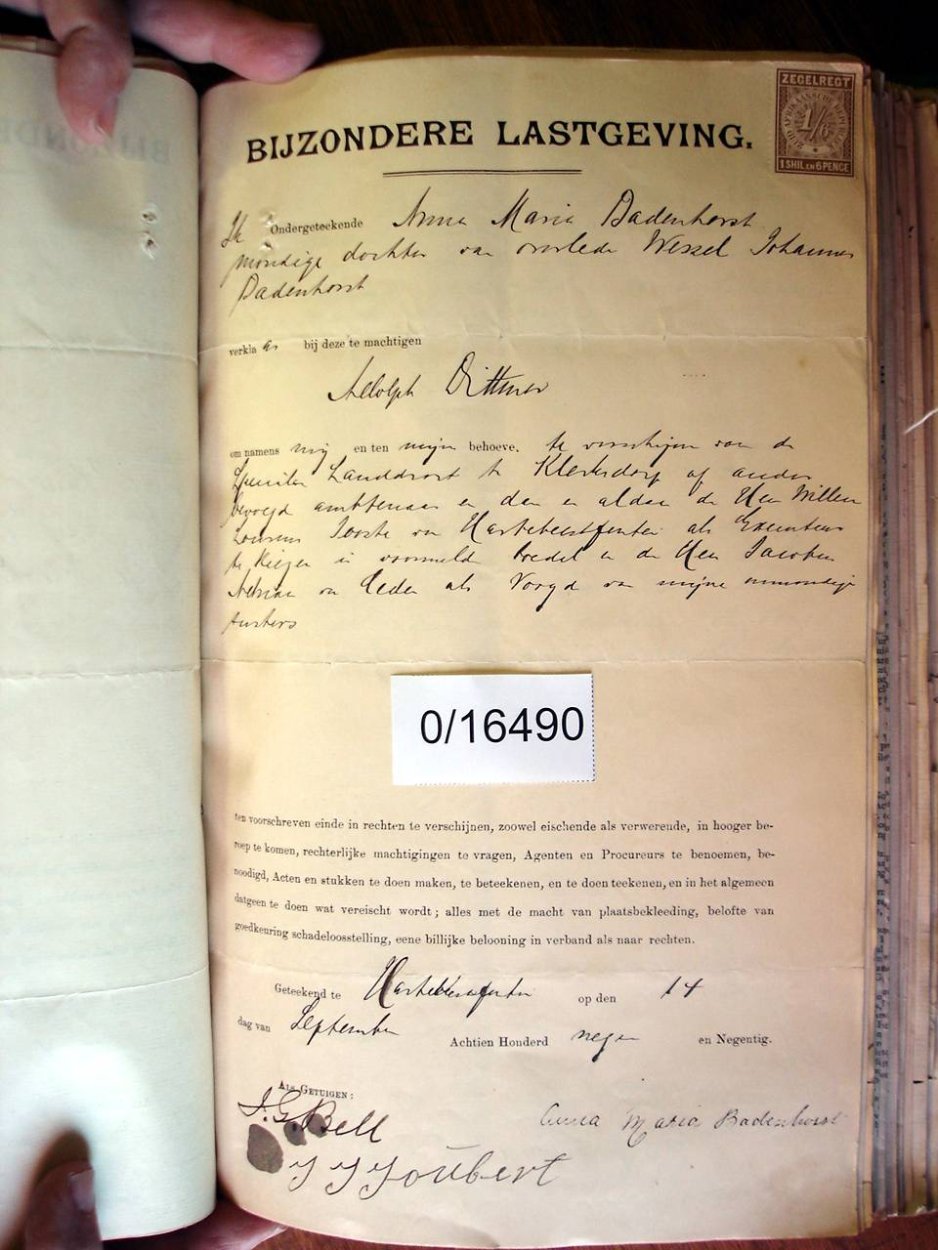 ZEGELREGT
1/6
1 SHIL EN 6 PENCE
BIJZONDERE LASTGEVING.
Ik Ondergeteekende Anna Maria Badenhorst
mondige dochter van overlede Wessel Johannes
Badenhorst
verkla bij deze te machtigen
Adolph Dittmer
om namens mij en ten mijn behoeve, te verschijnen voor de
Landdrost te Klerksdorp of ander
bevoegd ambtenaar en dan en aldaar de Heer Willem
Joste van Hartebeestfontein als Executeur
te kiezen in voormeld boedel en de Heer Jacobus
Adriaan als Voogd van mijne onmondige
zusters
0/16490
ten voorschreven einde in rechten te verschijnen, zoowel eischende als verwerende, in hooger be-
roep te komen, rechterlijke machtigingen te vragen, Agenten en Procureurs te benoemen, be-
noodigd, Acten en stukken te doen maken, te beteekenen, en te doen teekenen, en in het algemeen
datgeen te doen wat vereischt wordt; alles met de macht van plaatsbekleeding, belofte van
goedkeuring schadeloosstelling, eene billijke belooning in verband als naar rechten.
Geteekend te Hartebeestfontein op den 14
dag van September Achtien Honderd negen en Negentig.
Als Getuigen:
J. G. Bell
Anna Maria Badenhorst
J J Joubert